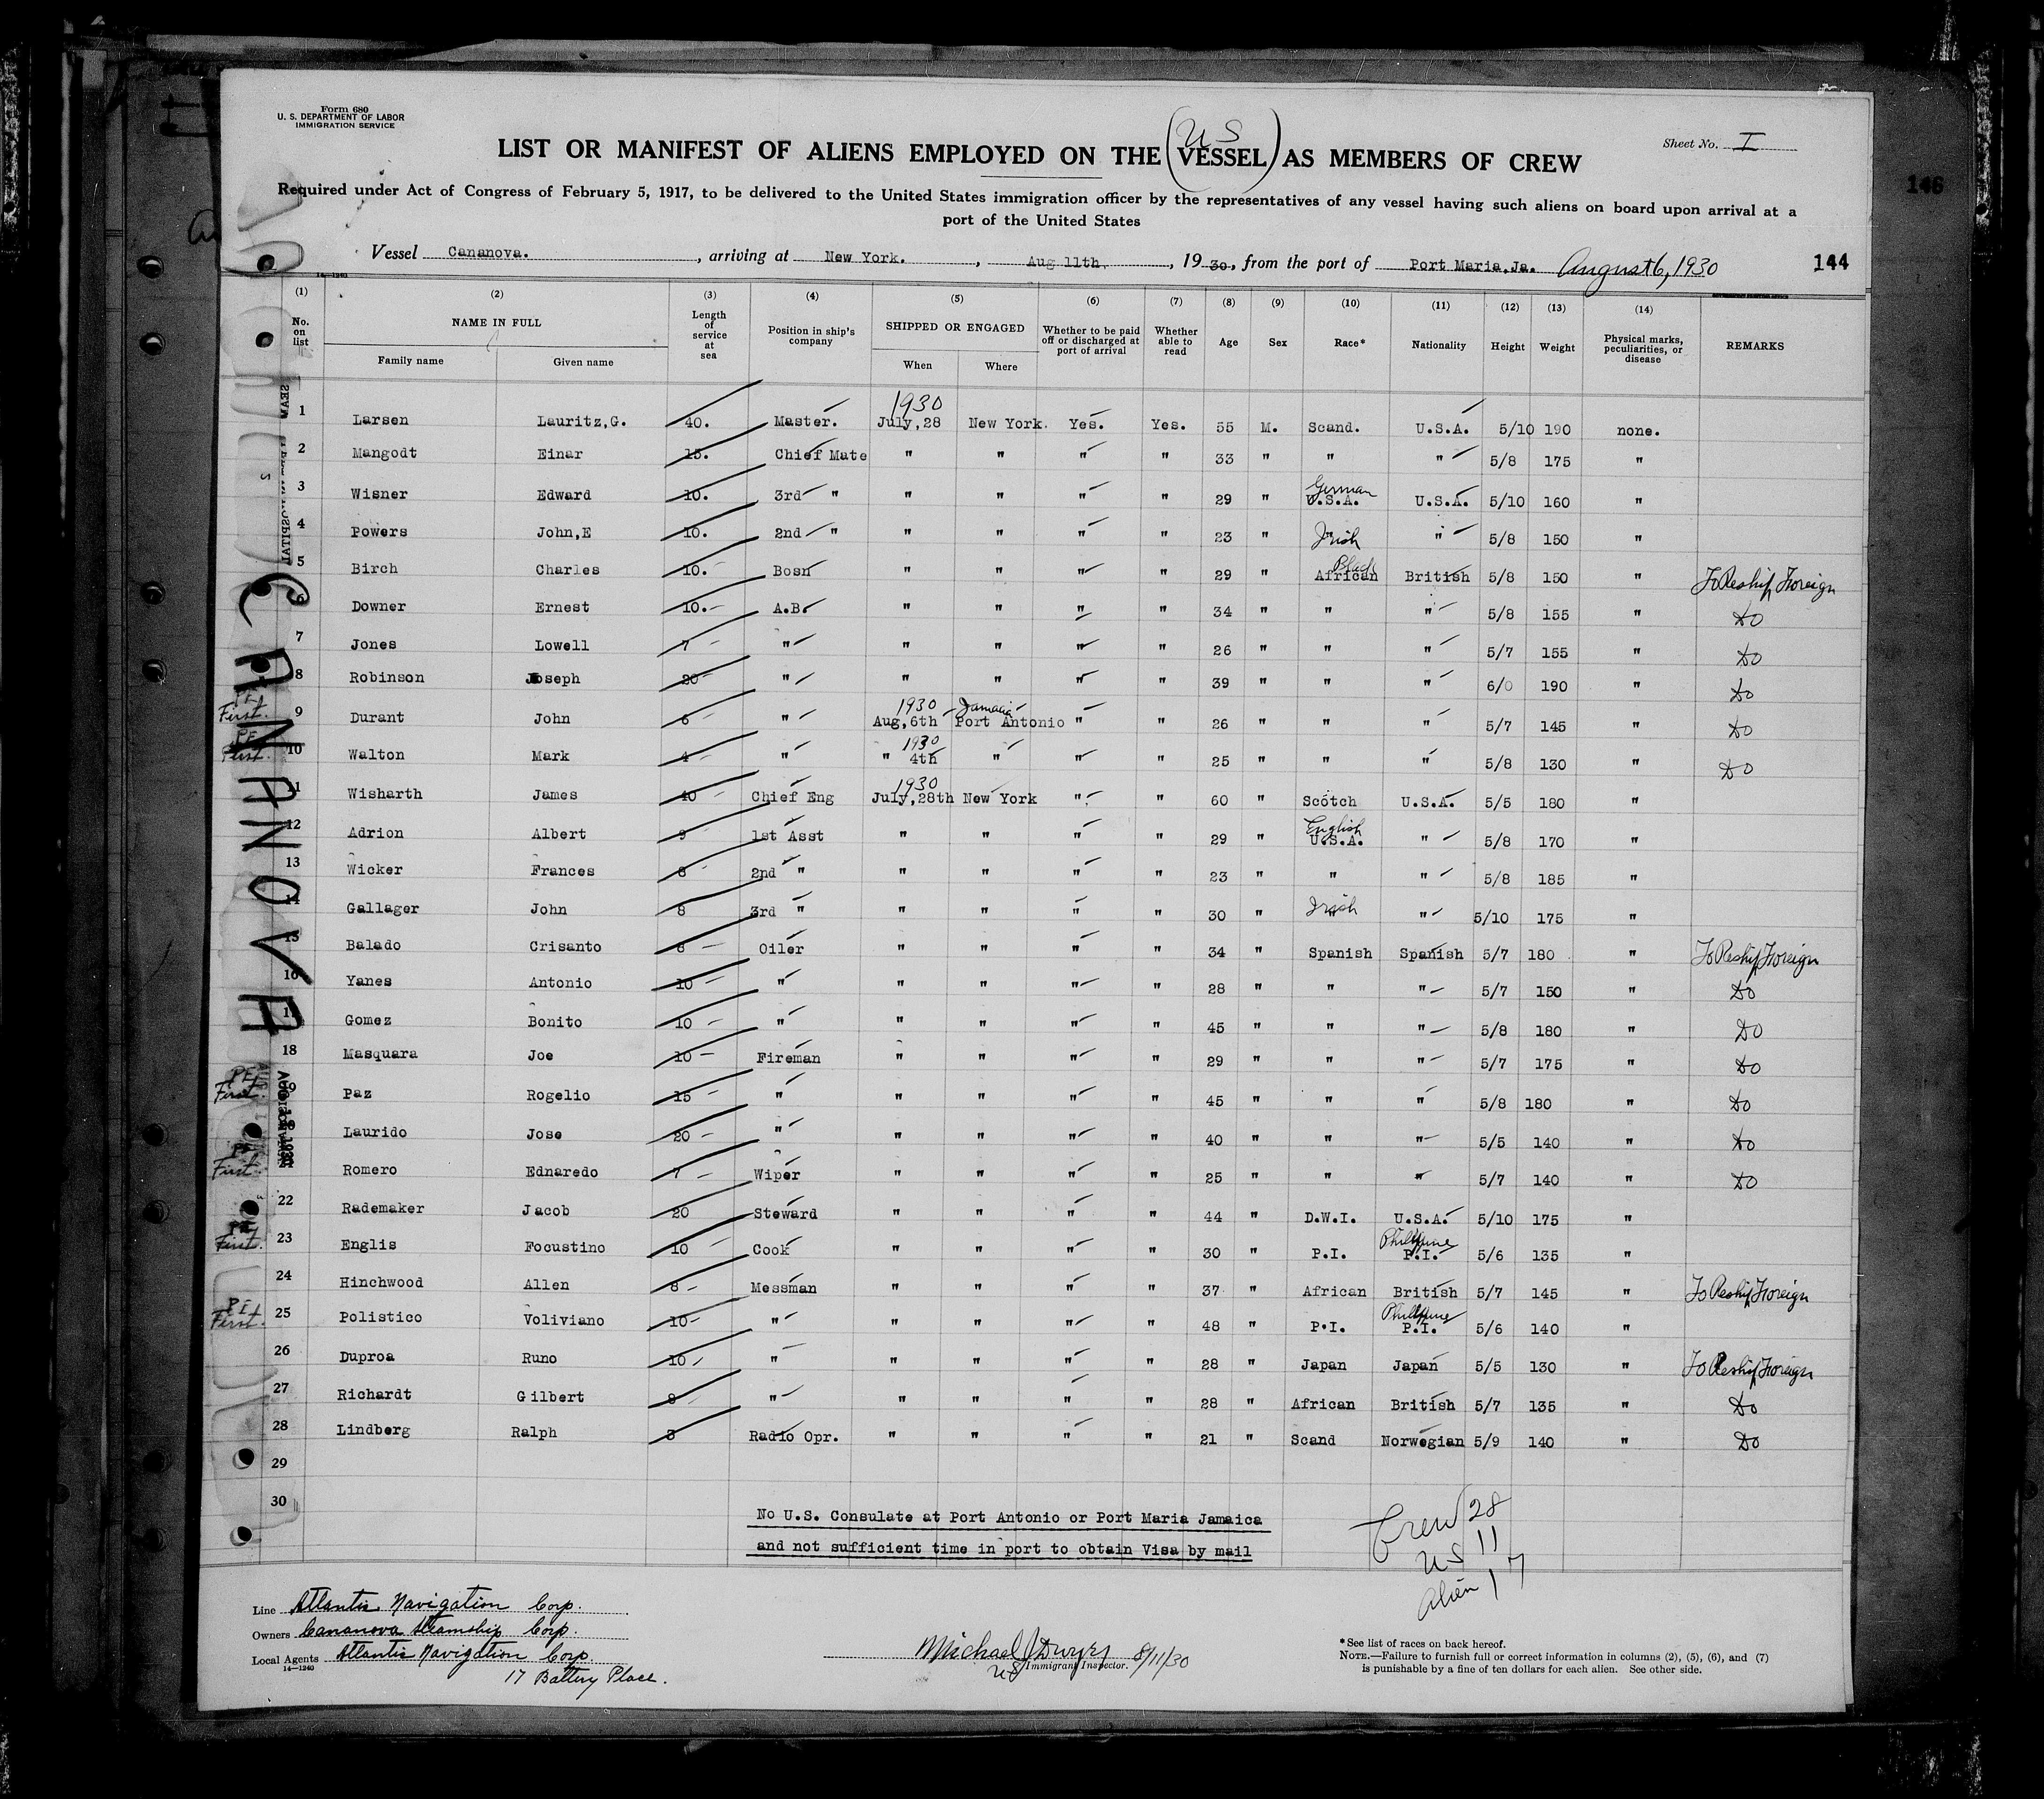 Form 680
U. S. DEPARTMENT OF LABOR
IMMIGRATION SERVICE
Sheet No. I
U S
LIST OR MANIFEST OF ALIENS EMPLOYED ON THE (VESSEL) AS MEMBERS OF CREW
146
Required under Act of Congress of February 5, 1917, to be delivered to the United States immigration officer by the representatives of any vessel having such aliens on board upon arrival at a
port of the United States
Vessel Cananova. , arriving at New York. , Aug 11th. , 19 30, from the port of Port Maria,Ja. August 6, 1930 144
14-1240
(1) (2) (3) (4) (5) (6) (7) (8) (9) (10) (11) (12) (13) (14)
No. on list NAME IN FULL Family name Given name Length of service at sea Position in ship's company SHIPPED OR ENGAGED When Where Whether to be paid off or discharged at port of arrival Whether able to read Age Sex Race* Nationality Height Weight Physical marks, peculiarities, or disease REMARKS
1930
1 Larsen Lauritz,G. 40. Master. July,28 New York. Yes. Yes. 55 M. Scand. U.S.A. 5/10 190 none.
2 Mangodt Einar 15. Chief Mate " " " " 33 " " " 5/8 175 "
3 Wisner Edward 10. 3rd " " " " " 29 " German U.S.A. U.S.A. 5/10 160 "
4 Powers John,E 10. 2nd " " " " " 23 " Irish " 5/8 150 "
5 Birch Charles 10. Bosn " " " " 29 " Black African British 5/8 150 " To Reship Foreign
6 Downer Ernest 10. A.B. " " " " 34 " " " 5/8 155 " Do
7 Jones Lowell 7 " " " " " 26 " " " 5/7 155 " Do
8 Robinson Joseph 20 " " " " " 39 " " " 6/0 190 " Do
PE First. 9 Durant John 6 " 1930 Aug,6th Jamaica Port Antonio " " 26 " " " 5/7 145 " Do
PE First. 10 Walton Mark 4 " 1930 " 4th " " " 25 " " " 5/8 130 " Do
11 Wisharth James 40 Chief Eng 1930 July,28th New York " " 60 " Scotch U.S.A. 5/5 180 "
12 Adrion Albert 9 1st Asst " " " " 29 " English U.S.A. " 5/8 170 "
13 Wicker Frances 8 2nd " " " " " 23 " " " 5/8 185 "
14 Gallager John 8 3rd " " " " " 30 " Irish " 5/10 175 "
15 Balado Crisanto 8 Oiler " " " " 34 " Spanish Spanish 5/7 180 " To Reship Foreign
16 Yanes Antonio 10 " " " " " 28 " " " 5/7 150 " Do
17 Gomez Bonito 10 " " " " " 45 " " " 5/8 180 " Do
18 Masquara Joe 10 Fireman " " " " 29 " " " 5/7 175 " Do
PE First. 19 Paz Rogelio 15 " " " " " 45 " " " 5/8 180 " Do
Laurido Jose 20 " " " " " 40 " " " 5/5 140 " Do
PE First. Romero Ednaredo 7 Wiper " " " " 25 " " " 5/7 140 " Do
22 Rademaker Jacob 20 Steward " " " " 44 " D.W.I. U.S.A. 5/10 175 "
PE First. 23 Englis Focustino 10 Cook " " " " 30 " P.I. Philippine P.I. 5/6 135 "
24 Hinchwood Allen 8 Messman " " " " 37 " African British 5/7 145 " To Reship Foreign
PE First. 25 Polistico Voliviano 10 " " " " " 48 " P.I. Philippine P.I. 5/6 140 "
26 Duproa Runo 10 " " " " " 28 " Japan Japan 5/5 130 " To Reship Foreign
27 Richardt Gilbert 8 " " " " " 28 " African British 5/7 135 " Do
28 Lindberg Ralph 3 Radio Opr. " " " " 21 " Scand Norwegian 5/9 140 " Do
29
30
CANANOVA
No U.S. Consulate at Port Antonio or Port Maria Jamaica
and not sufficient time in port to obtain Visa by mail
Crew 28
US 11
Alien 17
Line Atlantic Navigation Corp.
Owners Cananova Steamship Corp.
Local Agents Atlantic Navigation Corp.
14-1240
17 Battery Place.
Michael J Dwyer 8/11/30
US Immigrant Inspector.
* See list of races on back hereof.
NOTE.—Failure to furnish full or correct information in columns (2), (5), (6), and (7)
is punishable by a fine of ten dollars for each alien. See other side.